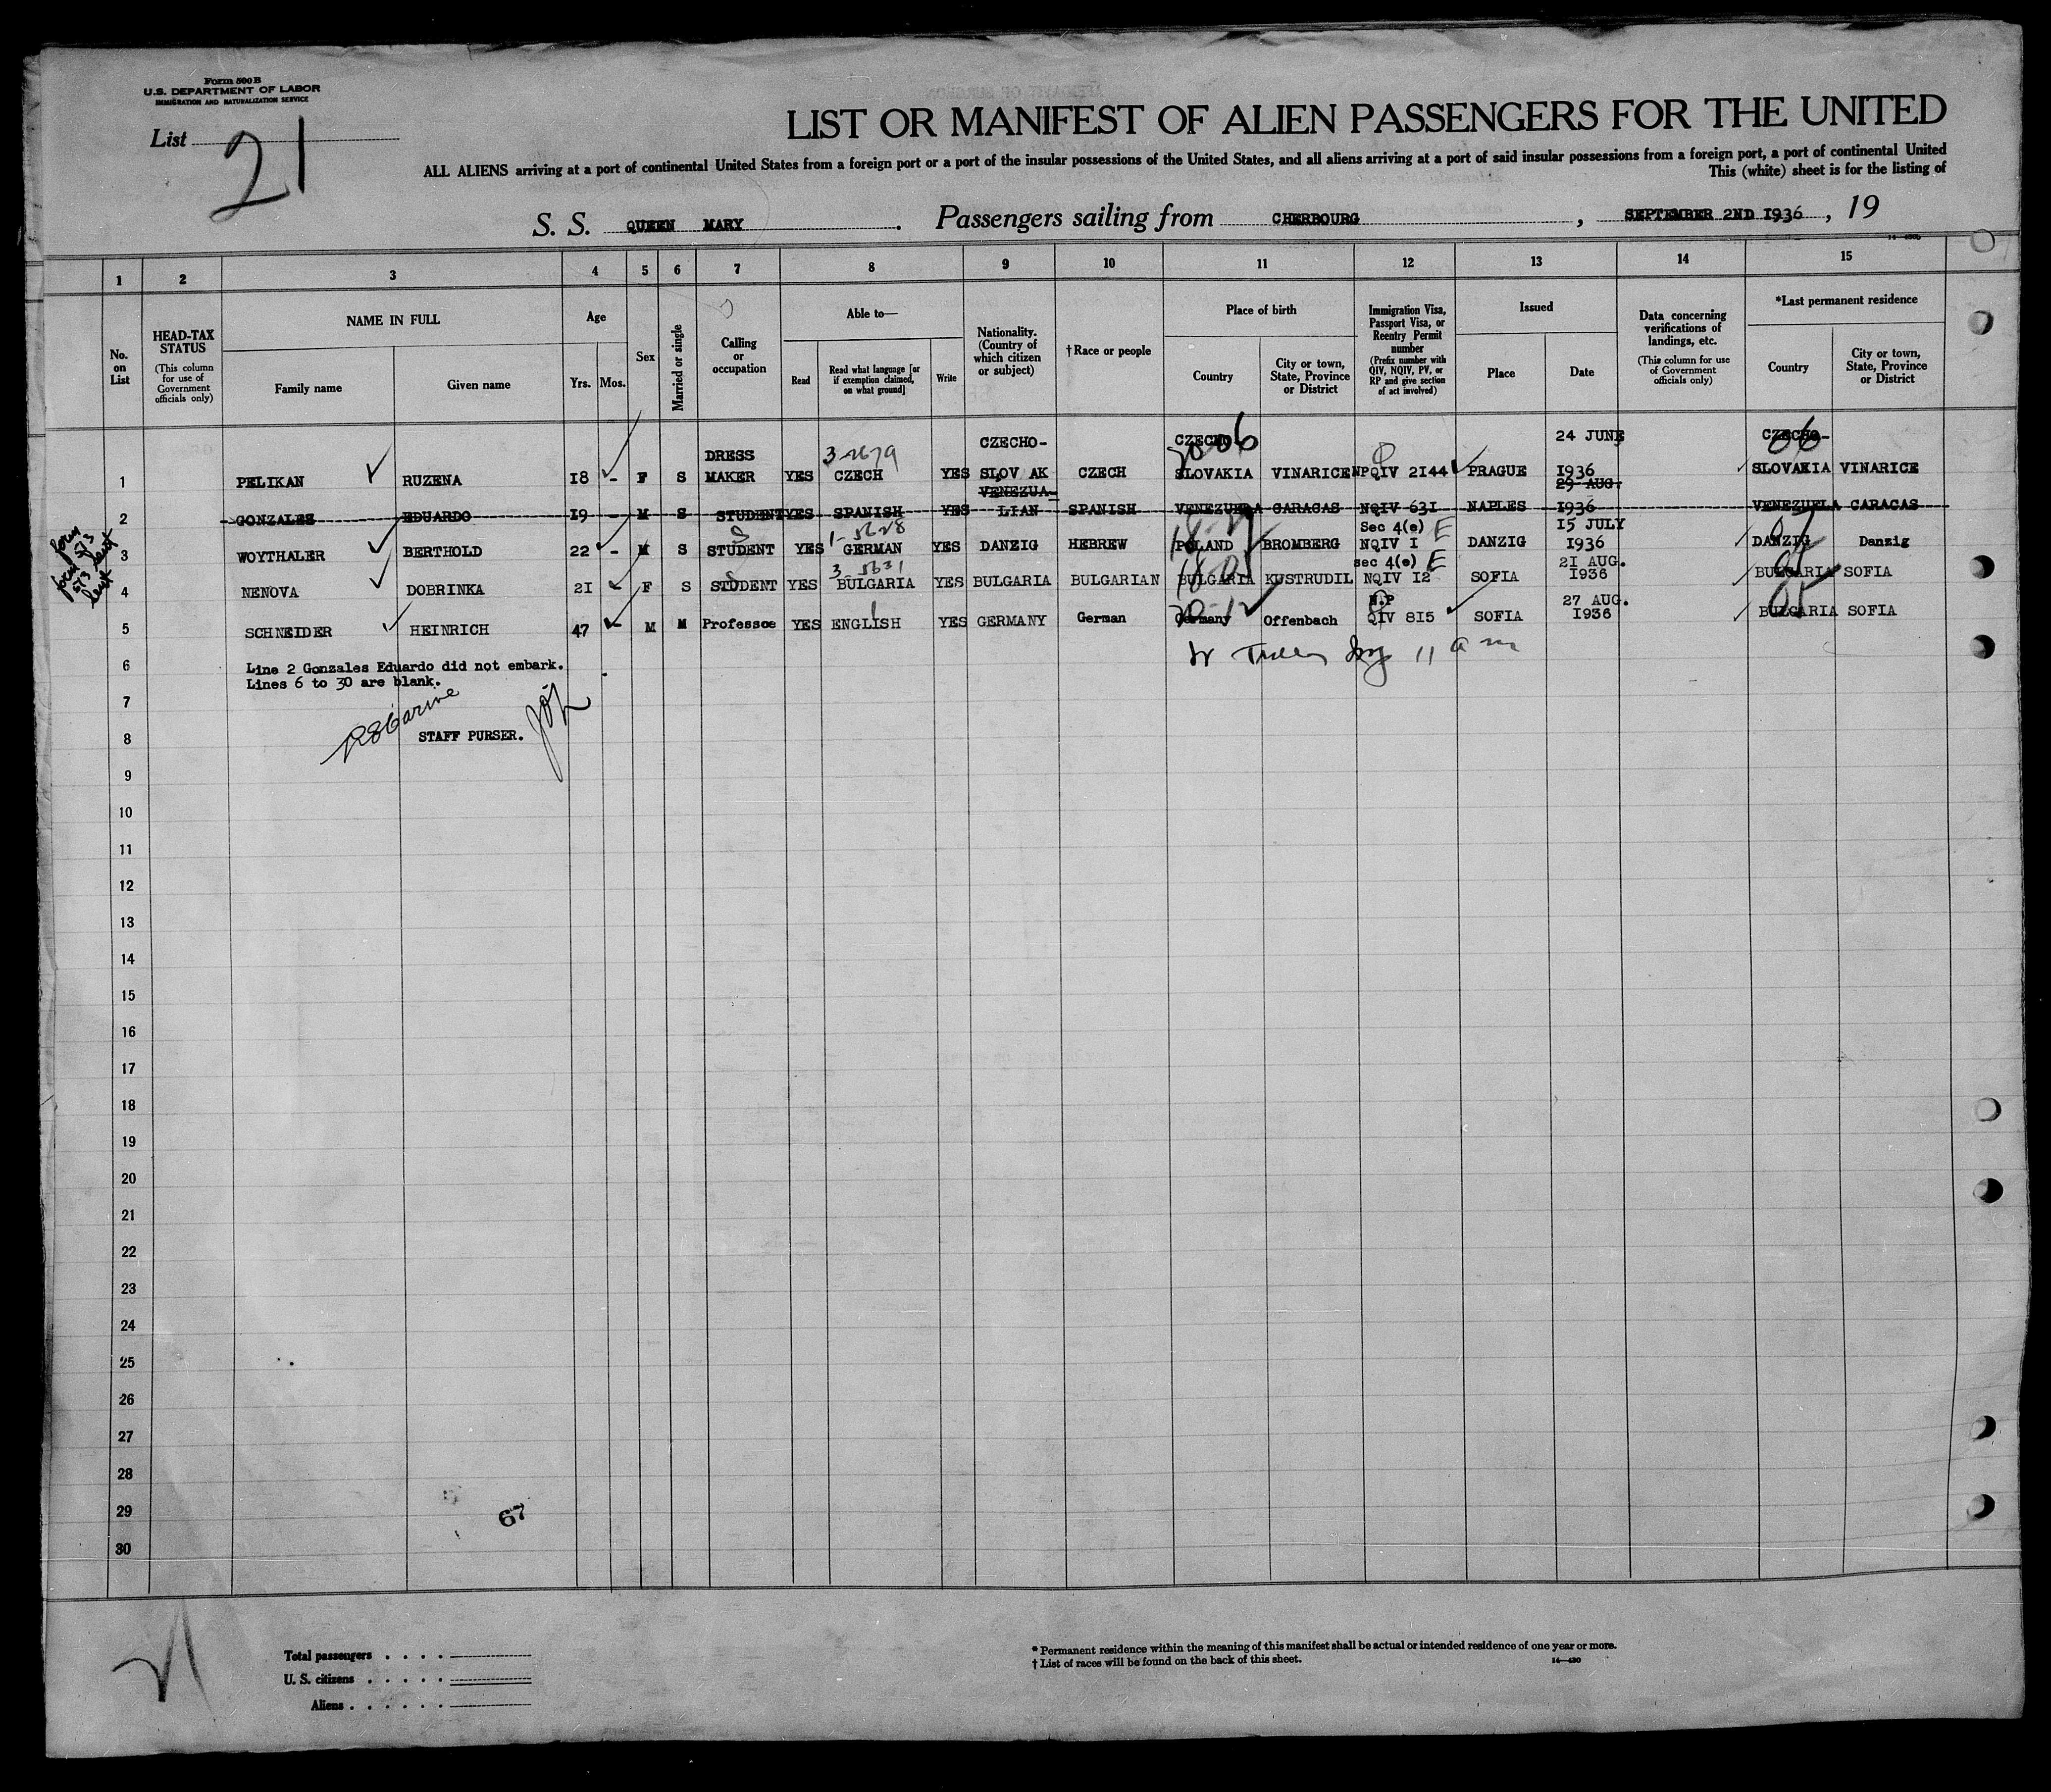 Form 500 B
U.S. DEPARTMENT OF LABOR
IMMIGRATION AND NATURALIZATION SERVICE
List 21
LIST OR MANIFEST OF ALIEN PASSENGERS FOR THE UNITED
ALL ALIENS arriving at a port of continental United States from a foreign port or a port of the insular possessions of the United States, and all aliens arriving at a port of said insular possessions from a foreign port, a port of continental United
This (white) sheet is for the listing of
S. S. QUEEN MARY. Passengers sailing from CHERBOURG, SEPTEMBER 2ND 1936, 19
1 2 3 4 5 6 7 8 9 10 11 12 13 14 15
No. on List
HEAD-TAX STATUS
(This column for use of Government officials only)
NAME IN FULL
Family name
Given name
Age
Yrs. Mos.
Sex
Married or single
Calling or occupation
Able to—
Read
Read what language [or if exemption claimed, on what ground]
Write
Nationality. (Country of which citizen or subject)
†Race or people
Place of birth
Country
City or town, State, Province or District
Immigration Visa, Passport Visa, or Reentry Permit number
(Prefix number with QIV, NQIV, PV, or RP and give section of act involved)
Issued
Place
Date
Data concerning verifications of landings, etc.
(This column for use of Government officials only)
*Last permanent residence
Country
City or town, State, Province or District
DRESS CZECHO- CZECHO- 24 JUNE CZECHO-
1 PELIKAN RUZENA 18 - F S MAKER YES CZECH YES SLOV AK CZECH SLOVAKIA VINARICE NPQIV 2144 PRAGUE 1936 SLOVAKIA VINARICE
VENEZUA- 29 AUG.
2 GONZALES EDUARDO 19 - M S STUDENT YES SPANISH YES LIAN SPANISH VENEZUELA CARACAS NQIV 631 NAPLES 1936 VENEZUELA CARACAS
Sec 4(e) E 15 JULY
3 WOYTHALER BERTHOLD 22 - M S STUDENT YES GERMAN YES DANZIG HEBREW POLAND BROMBERG NQIV I DANZIG 1936 DANZIG Danzig
sec 4(e) E 21 AUG.
4 NENOVA DOBRINKA 21 - F S STUDENT YES BULGARIA YES BULGARIA BULGARIAN BULGARIA KUSTRUDIL NQIV 12 SOFIA 1936 BULGARIA SOFIA
N.P 27 AUG.
5 SCHNEIDER HEINRICH 47 - M M Professoe YES ENGLISH YES GERMANY German Germany Offenbach QIV 815 SOFIA 1936 BULGARIA SOFIA
6 Line 2 Gonzales Eduardo did not embark.
Lines 6 to 30 are blank.
7
8 STAFF PURSER.
9
10
11
12
13
14
15
16
17
18
19
20
21
22
23
24
25
26
27
28
29
67
30
Total passengers
U. S. citizens
Aliens
* Permanent residence within the meaning of this manifest shall be actual or intended residence of one year or more.
† List of races will be found on the back of this sheet.
14—430